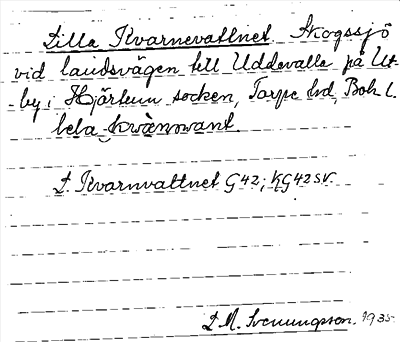 Lilla Kvarnevattnet. Skogssjö
vid landsvägen till Uddevalla på Ut-
by i Hjärtum socken, Torpe hd, Boh l.
lela kwànnwant.
L Kvarnvattnet G42; KG42SV.
L M. Svenungsson. 1935.